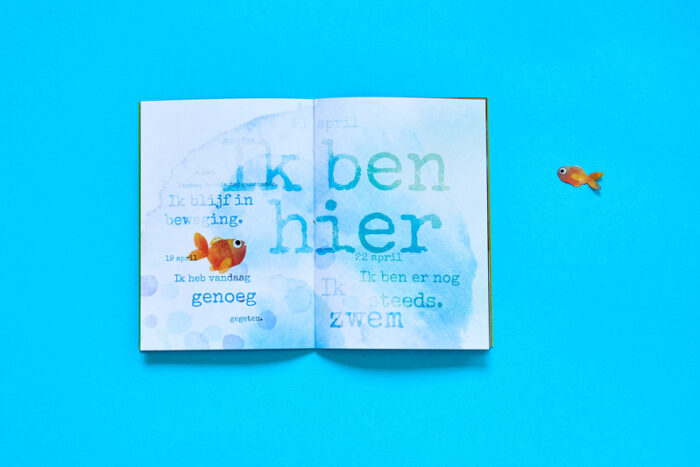 Ik blijf in
beweging.
19 april
Ik heb vandaag
genoeg
gegeten.
21 april
Ik ben
hier
22 april
Ik ben er nog
steeds.
Ik
zwem